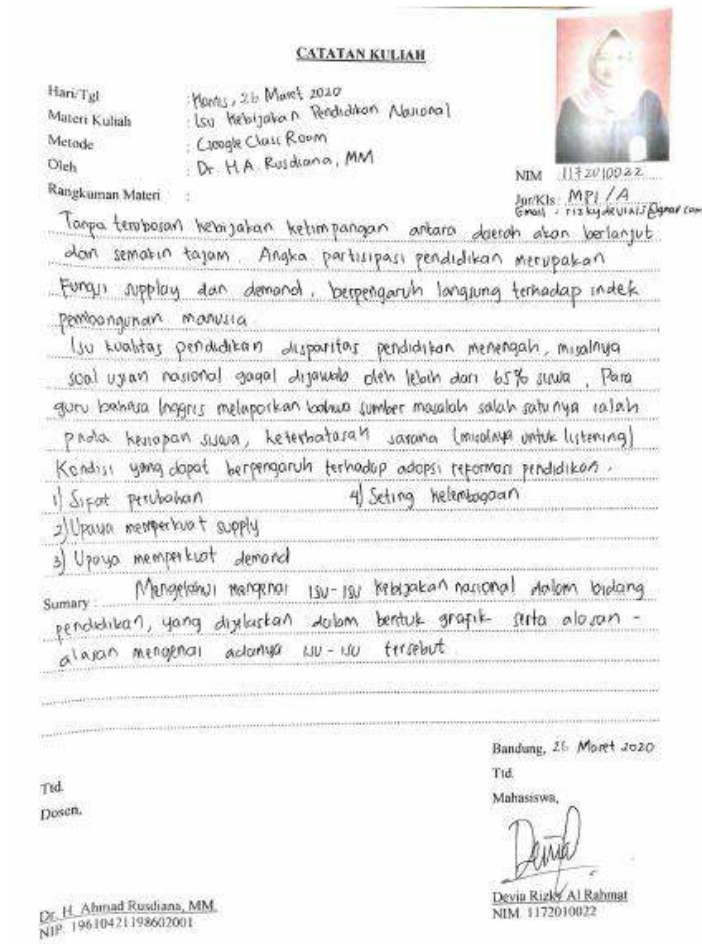 CATATAN KULIAH
Hari/Tgl : Kamis, 26 Maret 2020
Materi Kuliah : Isu Kebijakan Pendidikan Nasional
Metode : Google Class Room
Oleh : Dr. H.A. Rusdiana, MM
NIM 1172010022
Rangkuman Materi :
Jur/Kls : MPI / A
Email : rizkydevia15@gmail.com
Tanpa terobosan kebijakan ketimpangan antara daerah akan berlanjut
dan semakin tajam. Angka partisipasi pendidikan merupakan
Fungsi supplay dan demand, berpengaruh langsung terhadap indek
pembangunan manusia
Isu kualitas pendidikan disparitas pendidikan menengah, misalnya
soal ujian nasional gagal dijawab oleh lebih dari 65% siswa, Para
guru bahasa Inggris melaporkan bahwa sumber masalah salah satunya ialah
pada kesiapan siswa, keterbatasan sarana (misalnya untuk listening)
Kondisi yang dapat berpengaruh terhadap adopsi reformasi pendidikan.
1) Sifat perubahan 4) Seting kelembagaan
2) Upaya memperkuat supply
3) Upaya memperkuat demand
Sumary : mengenai isu-isu kebijakan nasional dalam bidang
pendidikan, yang dijelaskan dalam bentuk grafik serta alasan -
alasan mengenai adanya isu-isu tersebut
Bandung, 26 Maret 2020
Ttd.
Ttd.
Mahasiswa,
Dosen,
Devia Rizky Al Rahmat
Dr. H. Ahmad Rusdiana, MM.
NIM. 1172010022
NIP. 19610421198602001